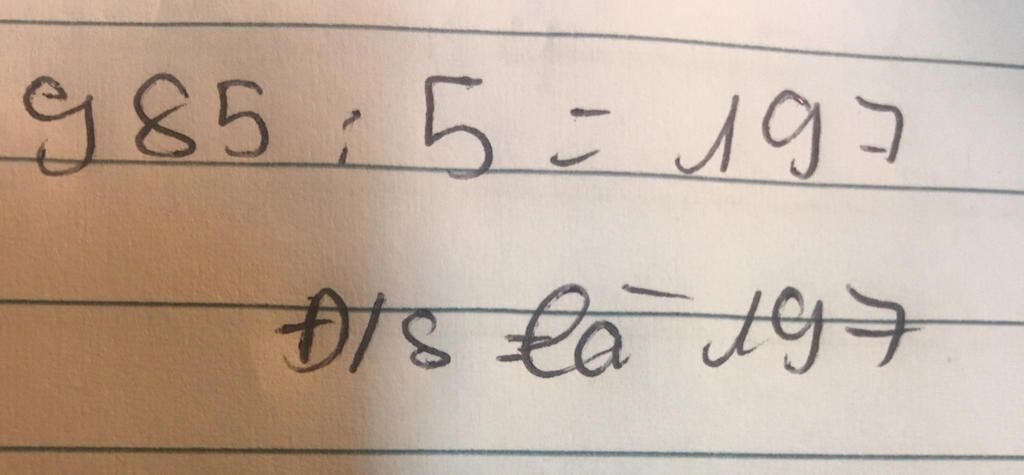 985 : 5 = 197
Đ/S là 197